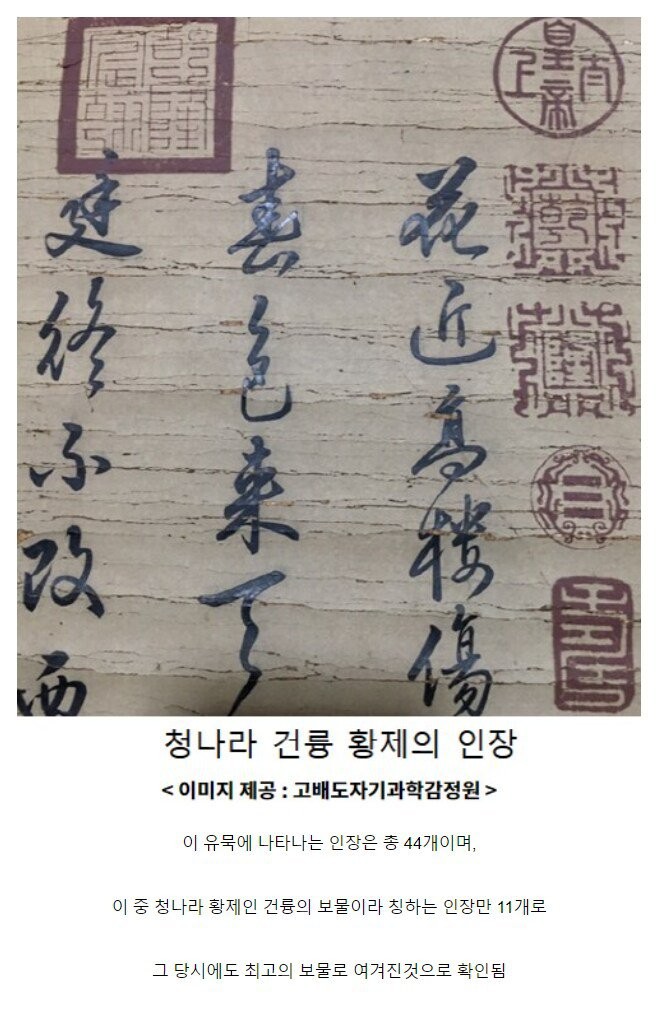 太上皇帝
乾
隆
花近高樓傷
春色來天
廷終不改西
乾隆宸翰
청나라 건륭 황제의 인장
< 이미지 제공 : 고배도자기과학감정원 >
이 유묵에 나타나는 인장은 총 44개이며,
이 중 청나라 황제인 건륭의 보물이라 칭하는 인장만 11개로
그 당시에도 최고의 보물로 여겨진것으로 확인됨